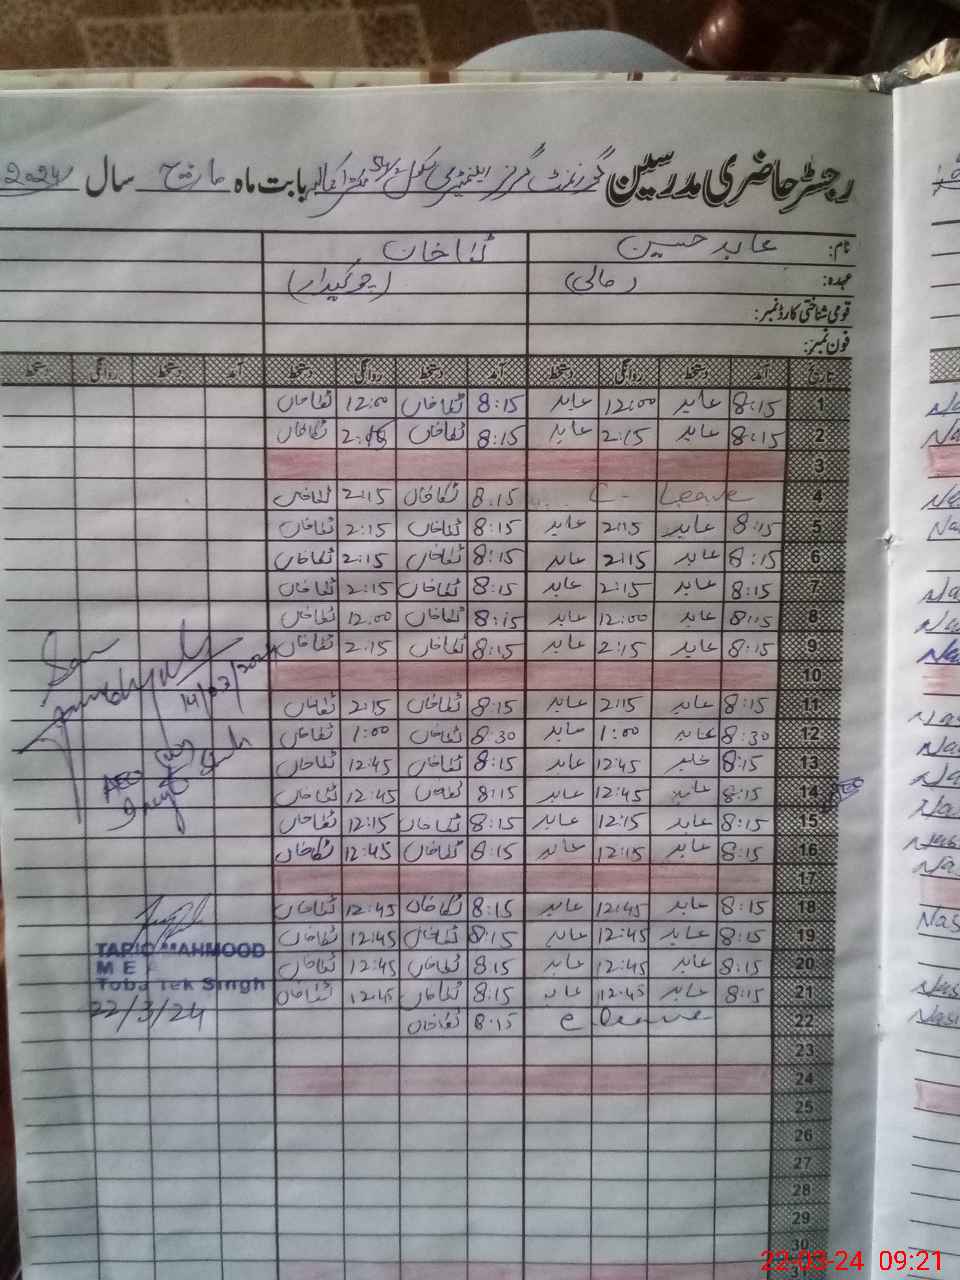 رجسٹر حاضری مدرسین گورنمنٹ گرلز ایلیمنٹری سکول بابت ماہ مارچ سال 2024
نام: عابد حسین ٹکا خان
عہدہ: (مالی) (چوکیدار)
قومی شناختی کارڈ نمبر:
فون نمبر:
تاریخ آمد دستخط روانگی دستخط آمد دستخط روانگی دستخط آمد دستخط روانگی دستخط
1 8:15 عابد 12:00 عابد 8:15 ٹکا خان 12:00 ٹکا خان
2 8:15 عابد 2:15 عابد 8:15 ٹکا خان 2:15 ٹکا خان
3
4 C- Leave 8:15 ٹکا خان 2:15 ٹکا خان
5 8:15 عابد 2:15 عابد 8:15 ٹکا خان 2:15 ٹکا خان
6 8:15 عابد 2:15 عابد 8:15 ٹکا خان 2:15 ٹکا خان
7 8:15 عابد 2:15 عابد 8:15 ٹکا خان 2:15 ٹکا خان
8 8:15 عابد 12:00 عابد 8:15 ٹکا خان 12:00 ٹکا خان
9 8:15 عابد 2:15 عابد 8:15 ٹکا خان 2:15 ٹکا خان
10
14/03/2024
11 8:15 عابد 2:15 عابد 8:15 ٹکا خان 2:15 ٹکا خان
12 8:30 عابد 1:00 عابد 8:30 ٹکا خان 1:00 ٹکا خان
13 8:15 عابد 12:45 عابد 8:15 ٹکا خان 12:45 ٹکا خان
AEO
14 8:15 عابد 12:45 عابد 8:15 ٹکا خان 12:45 ٹکا خان
15 8:15 عابد 12:15 عابد 8:15 ٹکا خان 12:15 ٹکا خان
16 8:15 عابد 12:15 عابد 8:15 ٹکا خان 12:45 ٹکا خان
17
18 8:15 عابد 12:45 عابد 8:15 ٹکا خان 12:45 ٹکا خان
19 8:15 عابد 12:45 عابد 8:15 ٹکا خان 12:45 ٹکا خان
TARIQ MAHMOOD
20 8:15 عابد 12:45 عابد 8:15 ٹکا خان 12:45 ٹکا خان
M E A
21 8:15 عابد 12:45 عابد 8:15 ٹکا خان 12:45 ٹکا خان
Toba Tek Singh
22 C leave 8:15 ٹکا خان
22/3/24
23
24
25
26
27
28
29
30
31
22-03-24 09:21